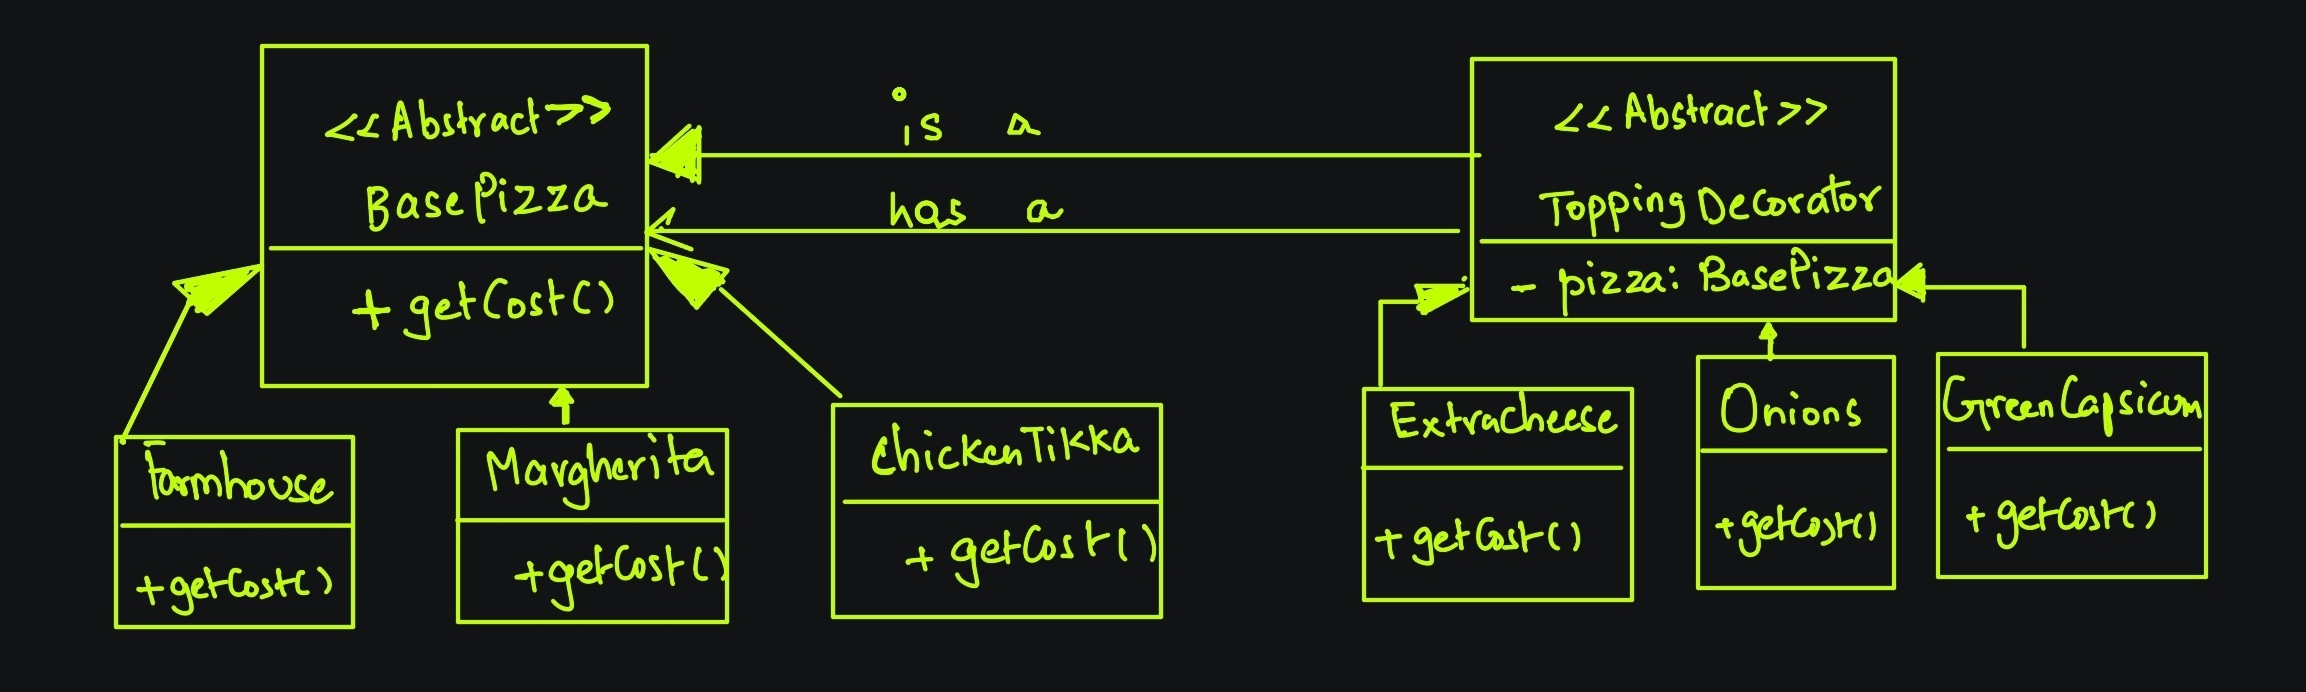 <<Abstract>>
BasePizza
+ getCost()
is a
has a
<<Abstract>>
ToppingDecorator
- pizza: BasePizza
Farmhouse
+getCost()
Margherita
+getCost()
ChickenTikka
+ getCost()
Extracheese
+getCost()
Onions
+getCost()
GreenCapsicum
+ getCost()